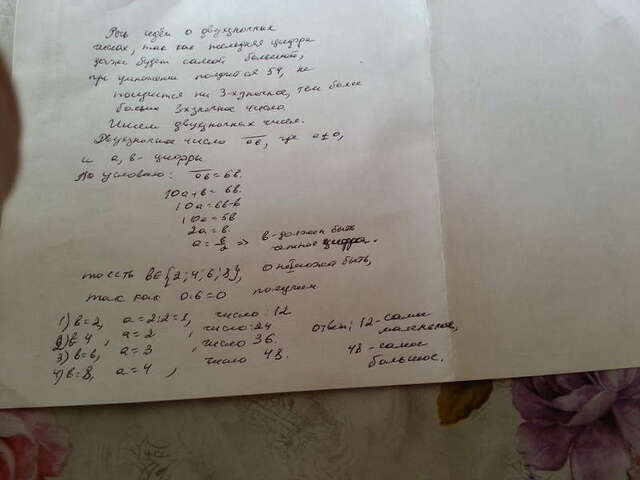 Речь идёт о двухзначных
числах, так как последняя цифра
даже будет самой большой,
при умножении получится 54, не
получится ни 3-хзначное, тем более
больше 3хзначное число.
Ищем двухзначные числа.
Двухзначное число ав, где а≠0,
и а, в - цифры.
По условию: ав = 6в.
10а+в = 6в.
10а = 6в-в
10а = 5в
2а = в
а = в/2 => в-должен быть
чётное цифра.
то есть в∈{2; 4; 6; 8}, 0 не может быть,
так как 0·6=0 получаем
1) в=2, а=2:2=1, число: 12
2) в=4, а=2, число: 24
3) в=6, а=3, число 36.
4) в=8, а=4, число 48.
ответ: 12-самое
маленькое,
48-самое
большое.